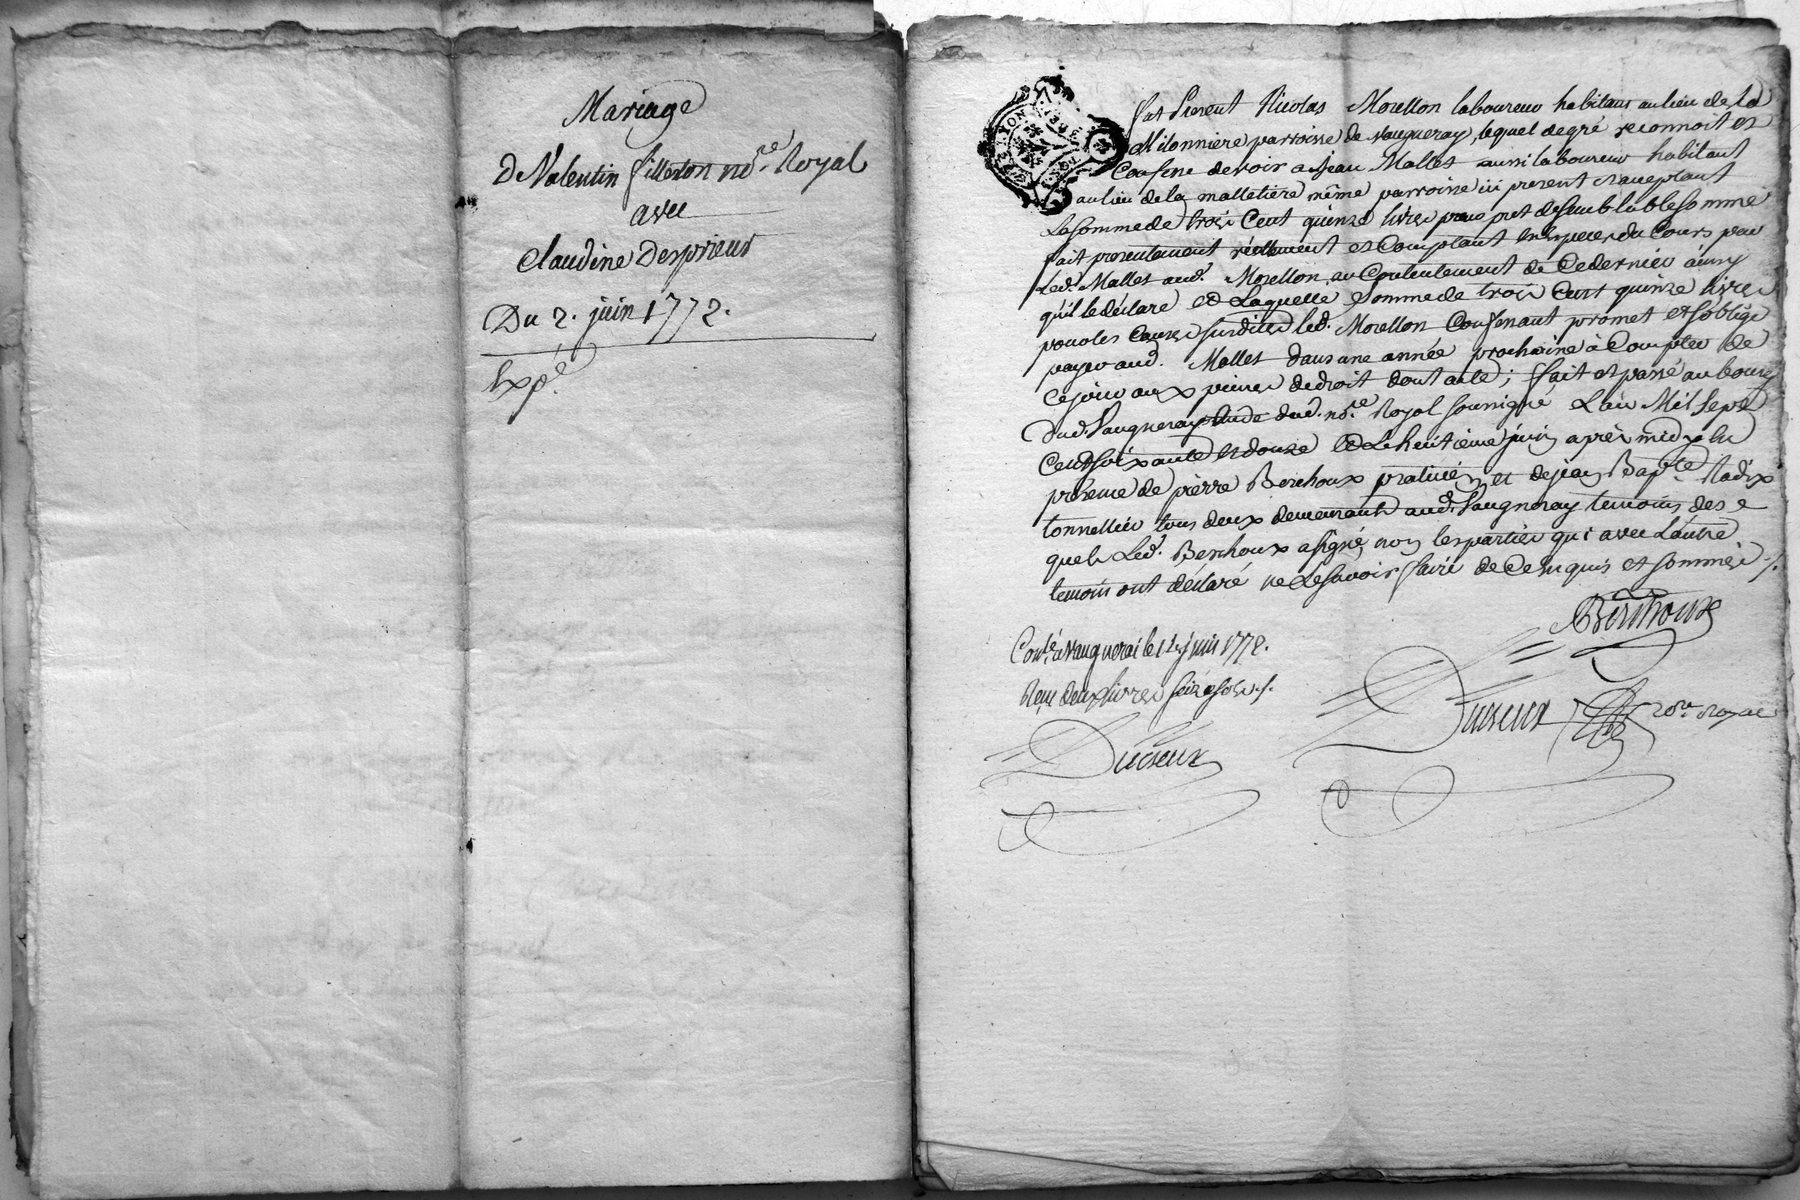 Mariage
De Valentin fillerton no.re Royal
avec
Claudine Desprieux
Du 2. juin 1772.
Exp.é
fut Present Nicolas Morellon laboureur habitant au lieu de la
Milonniere parroisse de vaugneray, lequel de gré reconnoit et
Confesse devoir a Jean Mallet aussi laboureur habitant
au lieu de la malletiere même parroisse ici present et acceptant
La somme de trois Cent quinze livres pour pret de semblable somme
fait presentement réellement et Comptant en Especes du Cours par
Led. Mallet aud. Morellon, au Contentement de Ce dernier ainsy
qu'il le déclare et Laquelle Somme de trois Cent quinze livres
pour les Causes susdites led. Morellon Confessant promet et s'oblige
payer aud. Mallet dans une année prochaine à Compter de
Ce jour aux peines de droit dont acte; fait et passé au bourg
dud. Vaugneray Etude dud. no.re Royal soussigné L'an Mil Sept
Cent soixante et douze et Le huitième juin après midy En
présence de pierre Berchoux praticien et de jean Bap.te Radix
tonnellier tous deux demeurants aud. Vaugneray temoins des
quels Led. Berchoux a signé, non les parties qui avec L'autre
temoin ont déclaré ne Le savoir faire de Ce Enquis et sommés ./.
Berchoux
Contlé a vaugnerai le 14 juin 1772.
Reçu deux livres seize sols ./.
Ducreux no.re Royal
Ducreux